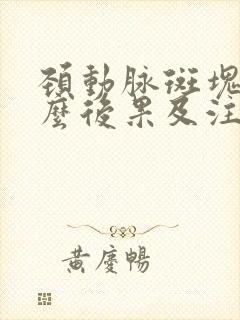 頚動脉斑塊
麼後果及注
黃慶暢